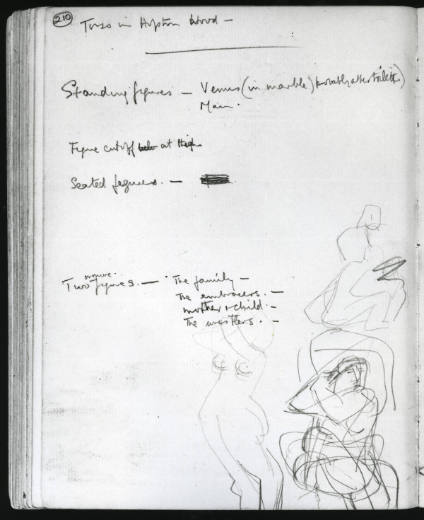 210
Torso in Hopton Wood —
Standing figures — Venus (in marble) probably after
Man.
Figure cut off at thighs
Seated figures. —
or more.
Two figures. — The family —
The embracers. —
mother & child. —
The wrestlers. —